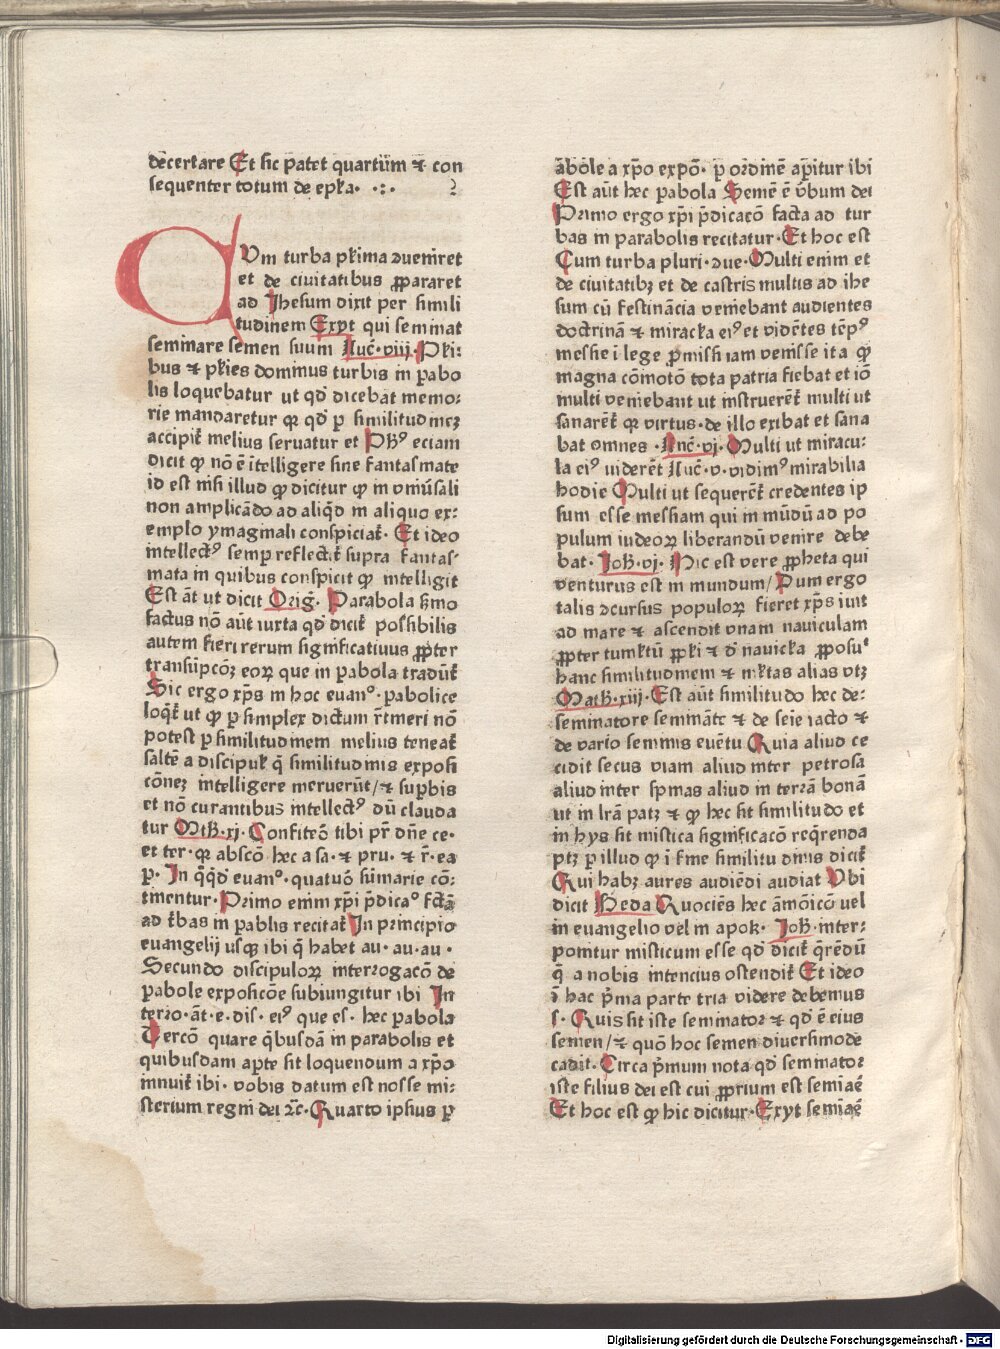 decertare Et sic patet quartũm ⁊ con
sequenter totum de ep̃la· ·:·
CVm turba plĩma ↄueniret
et de ciuitatibus ꝓpararet
ad Jhesum dixit per simili
tudinem Exyt qui seminat
seminare semen suum Luc̃·viij·Plĩ:
bus ⁊ plĩes dominus turbis in pabo
lis loquebatur ut qd̃ dicebat memo⸗
rie mandaretur qꝛ qd̃ ꝑ similitudinez
accipit̃ melius seruatur et Ph̃s eciam
dicit ꝙ nõ ẽ ĩtelligere sine fantasmate
id est nisi illud ꝙ dicitur ꝙ in vniũsali
non amplicãdo ad aliqd̃ in aliquo ex:
emplo ymagmali conspiciat̃· Et ideo
intellectꝰ semp reflectit̃ supra fantas⸗
mata in quibus conspicit ꝙ intelligit
Est ãt ut dicit Orig̃· Parabola s̃mo
factus nõ aũt iuxta qd̃ dicit̃ possibilis
autem fieri rerum significatiuus ꝓpter
transũpcõz eoꝝ que in pabola tradũt̃
Sic ergo xp̃s in hoc euanº· pabolice
loqt̃ ut ꝙ ꝑ simplex dictum r̃tineri nõ
potest ꝑ similitudinem melius teneat̃
saltẽ a discipul̃ q̃ similitudinis exposi
cõnez intelligere meruerũt/⁊ supbis
et nõ curantibus intellectꝰ dũ clauda
tur Mth̃·xj· Confiteõ tibi pr̃ dñe ce·
et ter·qꝛ abscõ hec a sa·⁊ pru·⁊ r̃·ea
ꝑ· In qq̃d̃ euanº·quatuõ sũmarie cõ:
tinentur·Primo enim xp̃i p̃dicaº fctã
ad t̃bas in pablis recitat̃ In principio
euangelij usqꝫ ibi q̃ habet au·au·au·
Secundo discipuloꝝ interrogacõ de
pabole exposicõe subiungitur ibi In
terro·ãt·e·dis·eiꝰ que es·hec pabola
Tercõ quare qb̃usdã in parabolis et
quibusdam apte sit loquendum a xp̃o
innuit̃ ibi·vobis datum est nosse mi:
sterium regni dei ꝛc̃·Quarto ipsius ꝑ
ãbole a xp̃o expõ· ꝑ ordinẽ ap̃itur ibi
Est aũt hec pabola Semẽ ẽ v̾bum dei
Primo ergo xp̃i p̃dicacõ facta ad tur
bas in parabolis recitatur·Et hoc est
Cum turba pluri·ↄue·Multi enim et
de ciuitatibꝫ et de castris multis ad ihe
sum cũ festinãcia veniebant audientes
doctrinã ⁊ miracl̃a eiꝰ et vidẽtes tẽpꝰ
messie i lege p̃missi iam venisse ita ꝙ
magna cõmotõ tota patria fiebat et iõ
multi veniebant ut instruerẽt̃ multi ut
sanarẽt̃ qꝛ virtus·de illo exibat et sana
bat omnes ·Luc̃·vj·Multi ut miracu⸗
la eiꝰ viderẽt Luc̃·v·vidimꝰ mirabilia
hodie Multi ut sequerẽt̃ credentes ip
sum esse messiam qui in mũdũ ad po
pulum iudeoꝝ liberandũ venire debe
bat· Joh̃·vj· Hic est vere ꝓpheta qui
venturus est in mundum/Dum ergo
talis ↄcursus populoꝝ fieret xp̃s iuit
ad mare ⁊ ascendit vnam nauiculam
ꝓpter tumltũ ꝓpl̃i ⁊ d̃ nauicl̃a ꝓposuᵗ
hanc similitudinem ⁊ ml̃tas alias vtꝫ
Math̃·xiij·Est aũt similitudo hec de:
seminatore semināte ⁊ de seĩe iacto ⁊
de vario seminis euẽtu Quia aliud ce
cidit secus viam aliud inter petrosa
aliud inter spinas aliud in terrã bonã
ut in lr̃a patꝫ ⁊ ꝙ hec sit similitudo et
in hys sit mistica significacõ reqr̃enda
ptꝫ ꝑ illud ꝙ i fine similitudinis dicit̃
Qui habꝫ aures audiẽdi audiat Vbi
dicit Beda Quociẽs hec ãmõicõ vel
in euangelio vel in apok· Joh̃·inter:
ponitur misticum esse qd̃ dicit̃ qr̃ẽdũ
q̃ a nobis intencius ostendit̃ Et ideo
ĩ hac p̃ma parte tria videre debemus
s· Quis sit iste seminator ⁊ qd̃ ẽ eius
semen/⁊ quõ hoc semen diuersimode
cadit·Circa p̃mum nota qd̃ seminator
iste filius dei est cui ꝓprium est semiãẽ
Et hoc est ꝙ hic dicitur·Exyt semiãẽ
Digitalisierung gefördert durch die Deutsche Forschungsgemeinschaft - DFG